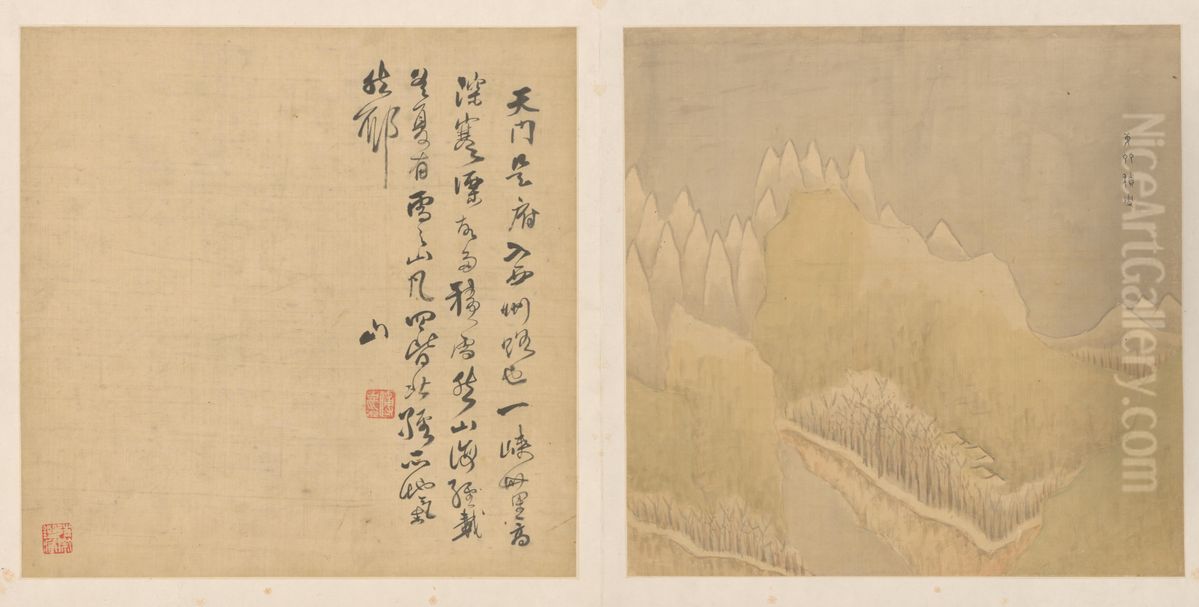 天門是府入西州路也一峽卅里高
深寒凜故多積雪然山海經載
冬夏有雪之山凡四皆北經亦地氣
然耶
山
NiceArtGallery.com